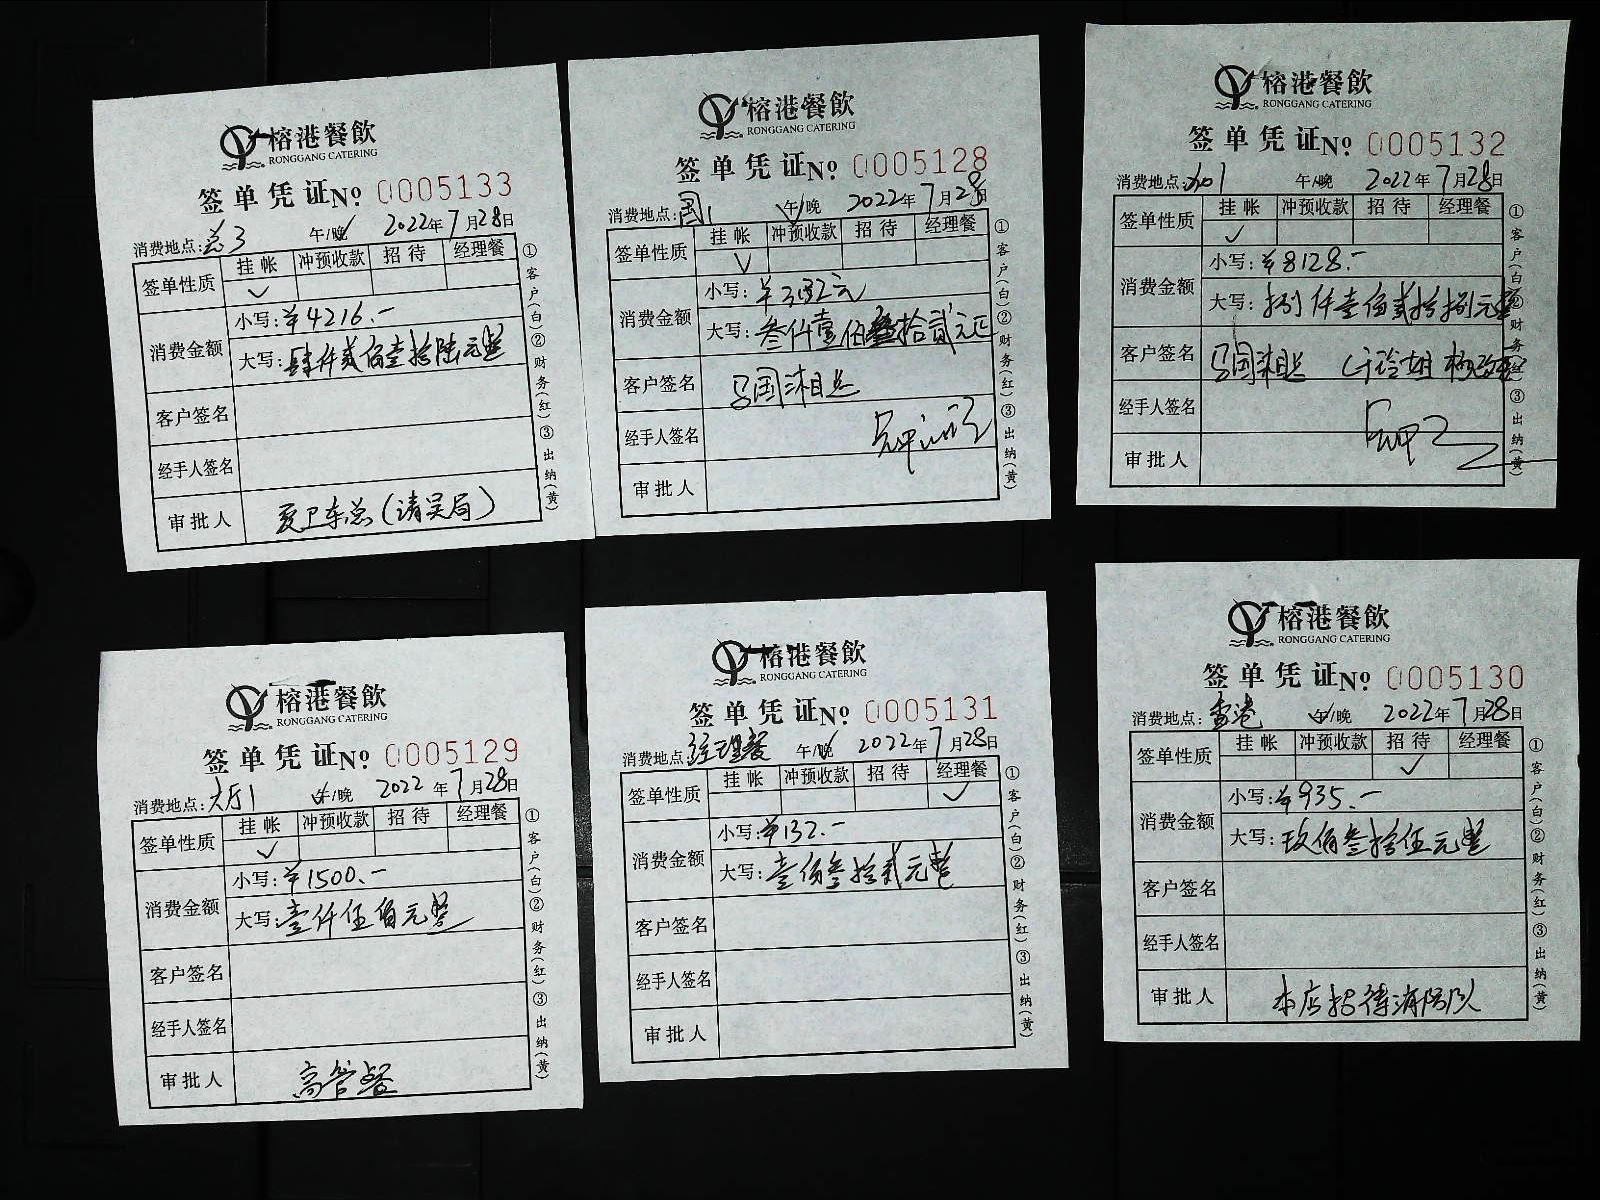 榕港餐飲
RONGGANG CATERING
签单凭证 No 0005133
消费地点: 总3 午/晚 2022年7月28日
签单性质 挂帐 冲预收款 招待 经理餐
✓
消费金额 小写: ¥4216.-
大写: 肆仟贰佰壹拾陆元整
客户签名
经手人签名
审批人 夏卫东总(请吴局)
①客户(白)②财务(红)③出纳(黄)
榕港餐飲
RONGGANG CATERING
签单凭证 No 0005128
消费地点: 午/晚 2022年7月28日
签单性质 挂帐 冲预收款 招待 经理餐
✓
消费金额 小写: ¥
大写: 叁仟壹佰 拾贰元正
客户签名 马国湘总
经手人签名
审批人
①客户(白)②财务(红)③出纳(黄)
榕港餐飲
RONGGANG CATERING
签单凭证 No 0005132
消费地点: 午/晚 2022年7月28日
签单性质 挂帐 冲预收款 招待 经理餐
✓
消费金额 小写: ¥8128.-
大写: 捌仟壹佰贰拾捌元整
客户签名 马国湘总
经手人签名
审批人
①客户(白)②财务(红)③出纳(黄)
榕港餐飲
RONGGANG CATERING
签单凭证 No 0005129
消费地点: 大厅1 午/晚 2022年7月28日
签单性质 挂帐 冲预收款 招待 经理餐
✓
消费金额 小写: ¥1500.-
大写: 壹仟伍佰元整
客户签名
经手人签名
审批人 高管餐
①客户(白)②财务(红)③出纳(黄)
榕港餐飲
RONGGANG CATERING
签单凭证 No 0005131
消费地点: 经理餐 午/晚 2022年7月28日
签单性质 挂帐 冲预收款 招待 经理餐
✓
消费金额 小写: ¥132.-
大写: 壹佰叁拾贰元整
客户签名
经手人签名
审批人
①客户(白)②财务(红)③出纳(黄)
榕港餐飲
RONGGANG CATERING
签单凭证 No 0005130
消费地点: 香港 午/晚 2022年7月28日
签单性质 挂帐 冲预收款 招待 经理餐
✓
消费金额 小写: ¥935.-
大写: 玖佰叁拾伍元整
客户签名
经手人签名
审批人 本店招待消防队
①客户(白)②财务(红)③出纳(黄)